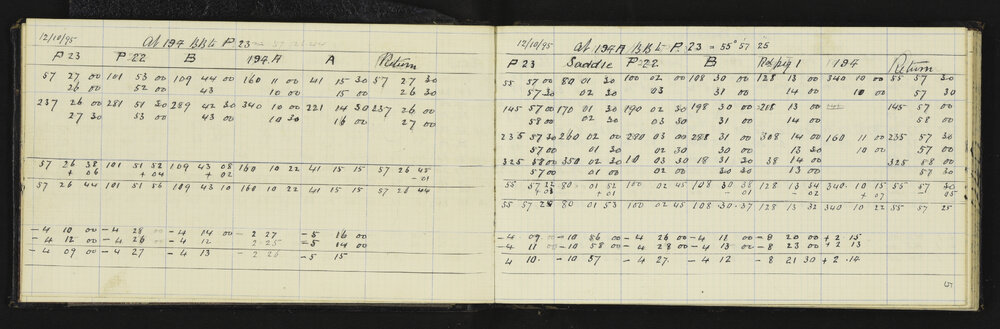 12/10/95 At 194 BB to P 23
P 23 P 22 B 194 A A Return
57 27 00 101 53 00 109 44 00 160 11 00 41 15 30 57 27 30
26 00 52 00 43 10 00 15 00 26 30
237 26 00 281 51 30 289 42 30 340 10 00 221 14 30 237 26 00
27 30 53 00 43 00 10 30 16 00 27 00
57 26 38 101 51 52 109 43 08 160 10 22 41 15 15 57 26 45
+ 06 + 04 + 02 - 01
57 26 44 101 51 56 109 43 10 160 10 22 41 15 15 57 26 44
- 4 10 00 - 4 28 00 - 4 14 00 - 2 27 - 5 16 00
- 4 12 00 - 4 26 00 - 4 12 2 25 - 5 14 00
- 4 09 00 - 4 27 - 4 13 - 2 26 - 5 15
12/10/95 At 194 A BB to P 23 = 55° 57' 25
P 23 Saddle P 22 B Rd pig 1 194 Return
55 57 00 80 01 30 100 02 00 108 30 00 128 13 00 340 10 00 55 57 30
57 30 02 30 03 31 00 14 00 10 00 57 30
145 57 00 170 01 30 190 02 30 198 30 00 218 13 00 145 57 00
58 00 02 00 03 30 31 00 14 00 58 00
235 57 30 260 02 00 280 03 00 288 31 00 308 14 00 160 11 00 235 57 30
57 00 01 30 02 30 30 00 13 30 10 00 57 00
325 58 00 350 02 30 10 03 30 18 31 30 38 14 00 325 58 00
57 00 01 00 02 00 30 30 13 00 57 30
55 57 22 80 01 52 100 02 45 108 30 38 128 13 34 340 10 15 55 57 30
+ 03 + 01 - 01 - 02 + 07 - 05
55 57 25 80 01 53 100 02 45 108 30 37 128 13 32 340 10 22 55 57 25
- 4 09 - 10 56 00 - 4 26 00 - 4 11 00 - 8 20 00 + 2 15
- 4 11 00 - 10 58 00 - 4 28 00 - 4 13 00 - 8 23 00 + 2 13
4 10 - 10 57 - 4 27 - 4 12 - 8 21 30 + 2 14